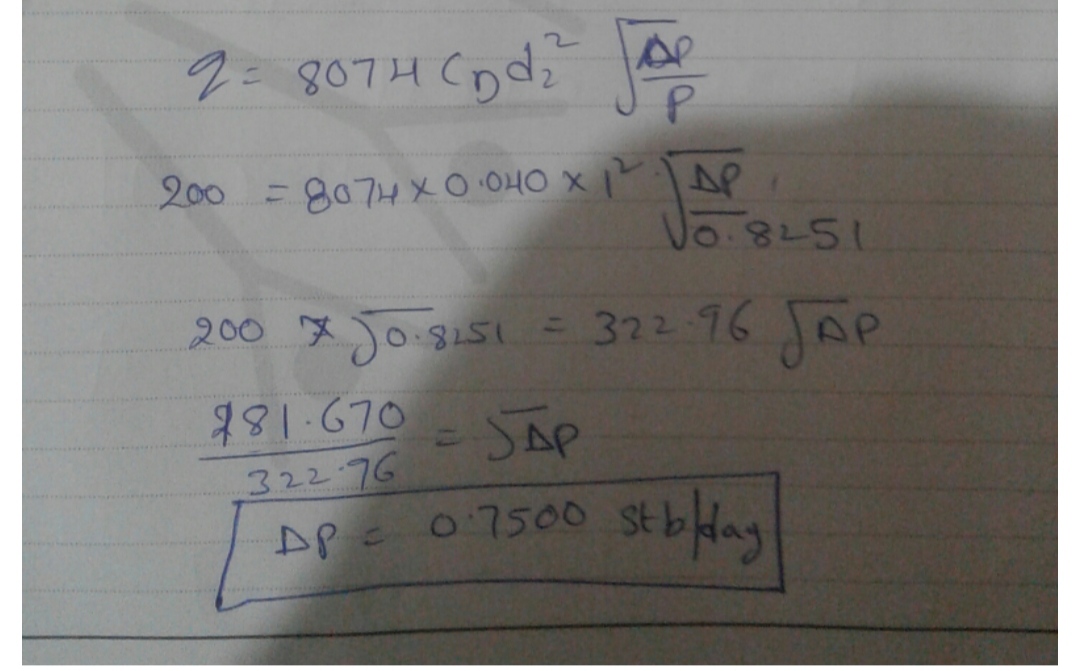 q = 8074 C_D d_2^2 √(ΔP/P)
200 = 8074 × 0.040 × 1^2 √(ΔP/0.8251)
200 × √0.8251 = 322.96 √ΔP
181.670/322.96 = √ΔP
ΔP = 0.7500 stb/day